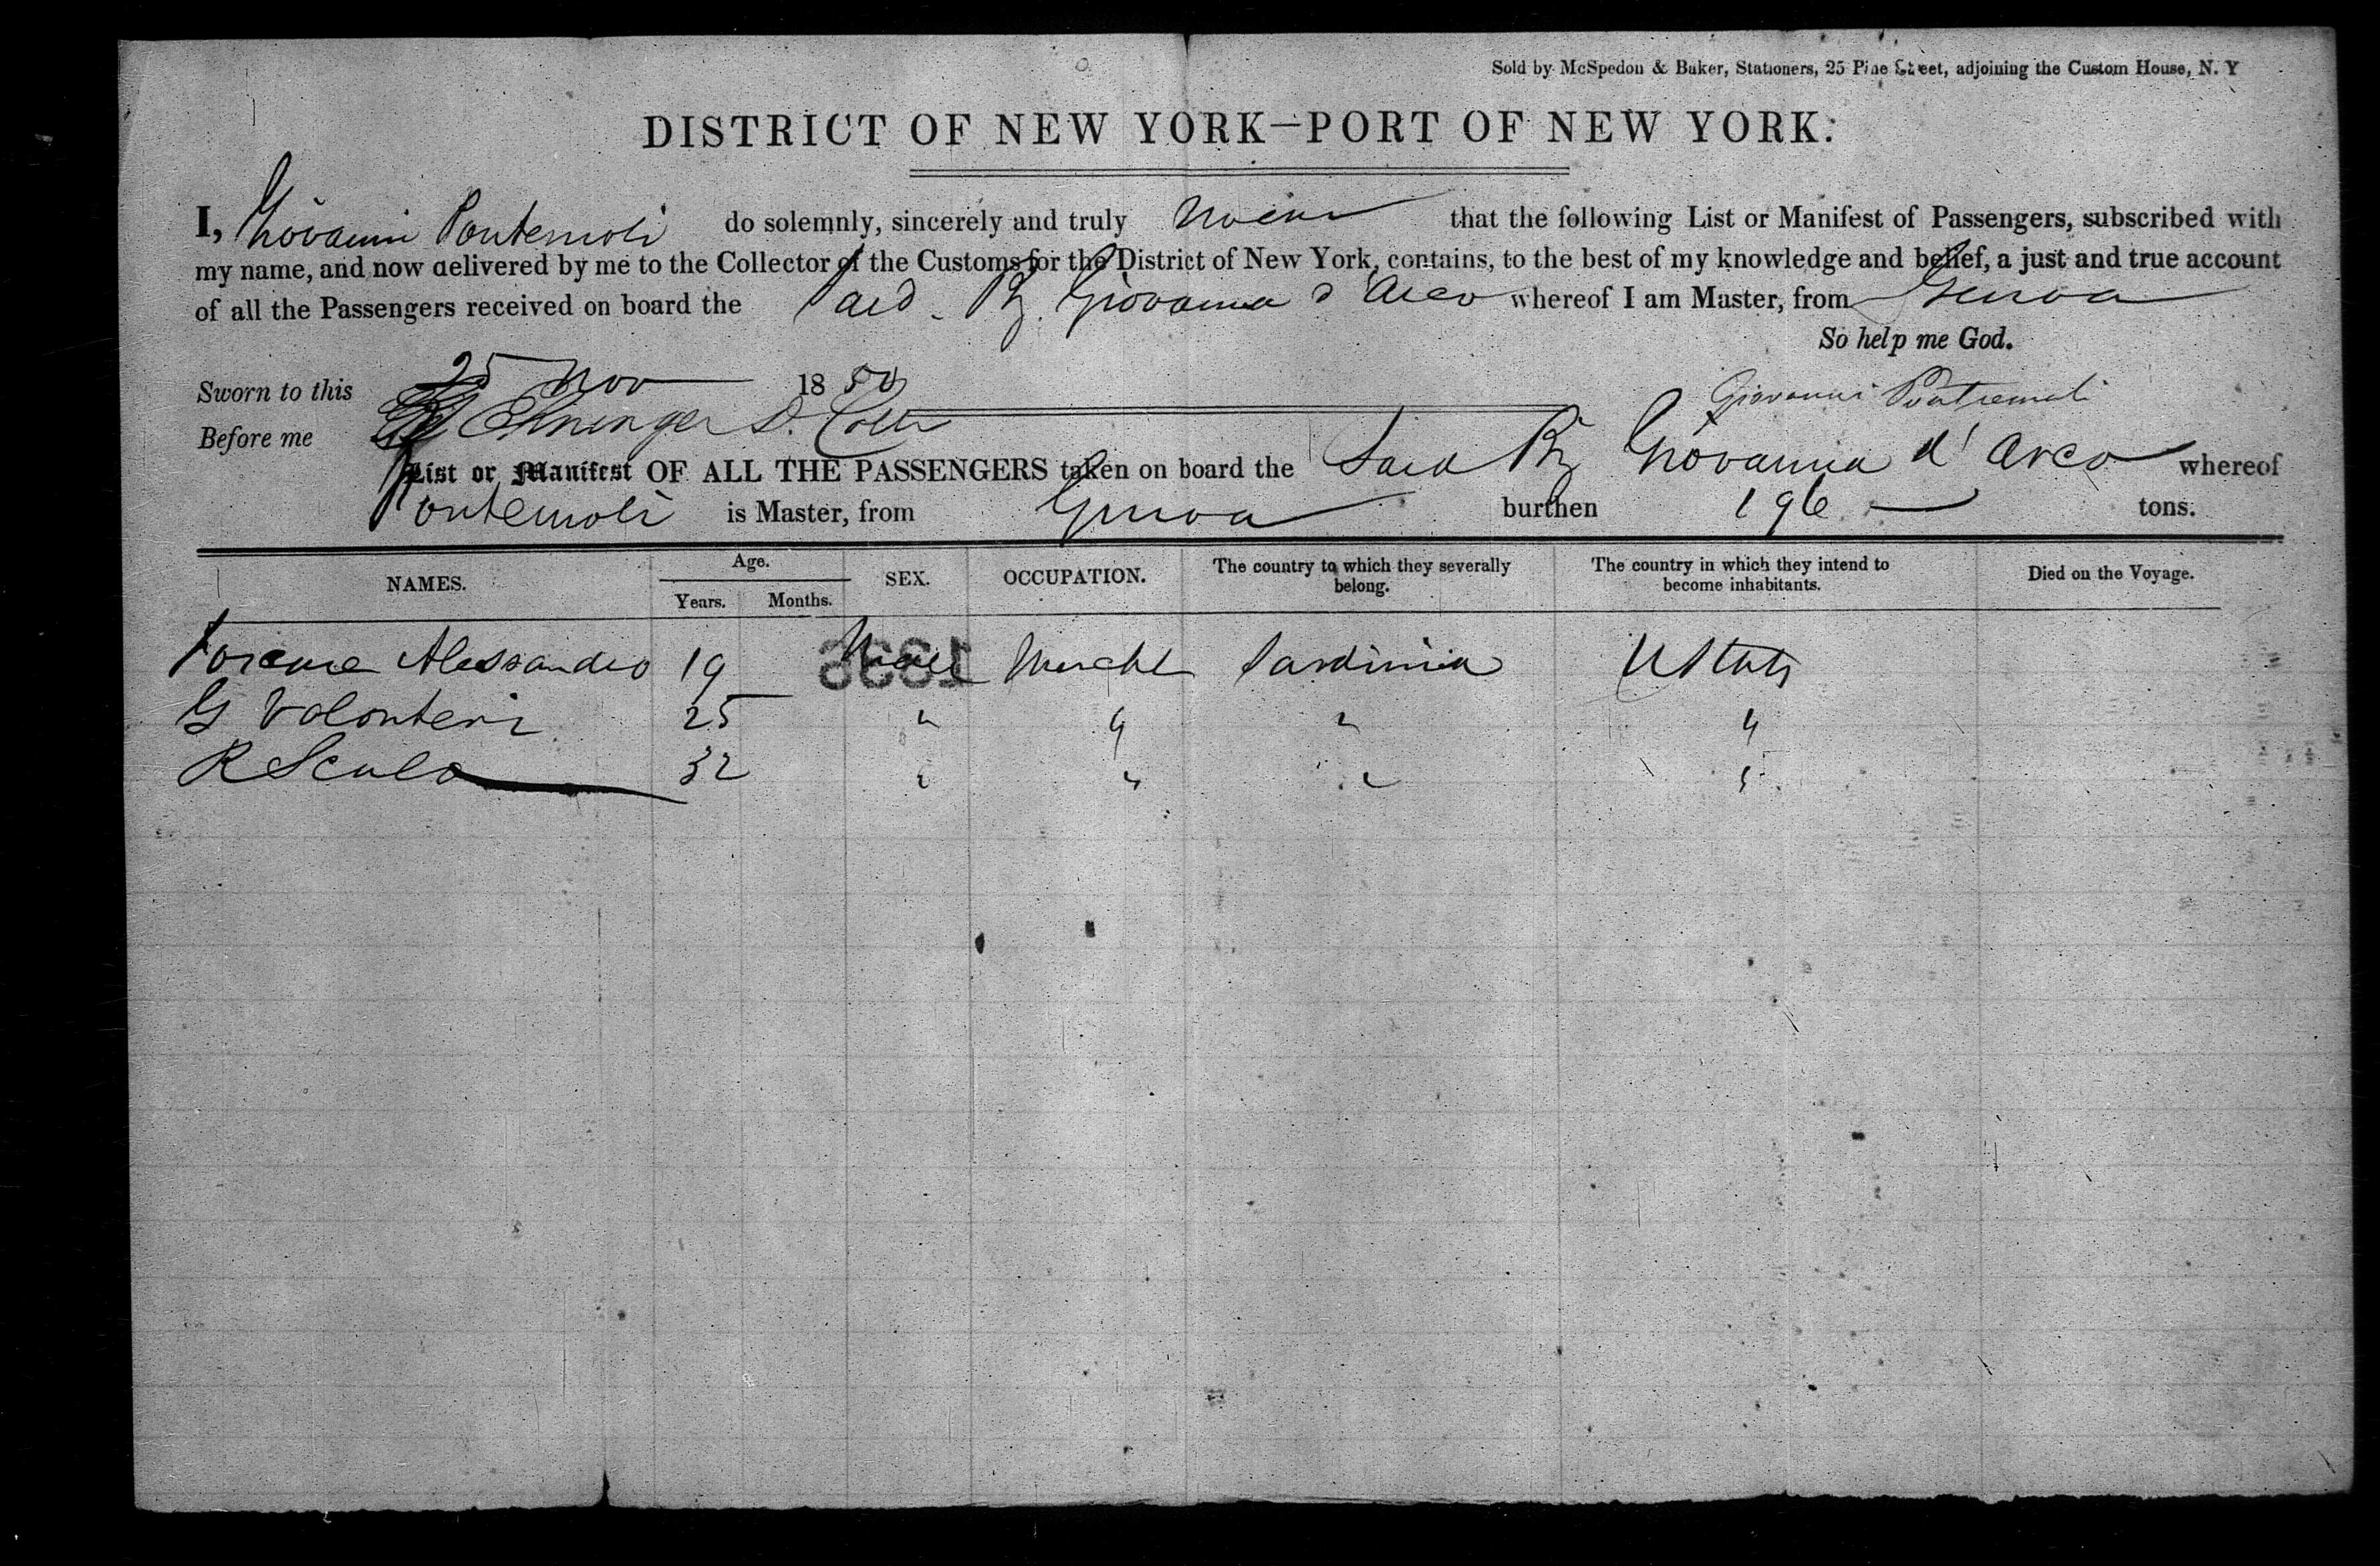 Sold by McSpedon & Baker, Stationers, 25 Pine Street, adjoining the Custom House, N. Y
DISTRICT OF NEW YORK—PORT OF NEW YORK.
I, Giovanni Pontemoli do solemnly, sincerely and truly swear that the following List or Manifest of Passengers, subscribed with
my name, and now delivered by me to the Collector of the Customs for the District of New York, contains, to the best of my knowledge and belief, a just and true account
of all the Passengers received on board the Sard. Bg. Giovanna d'Arco whereof I am Master, from Genoa
So help me God.
Sworn to this 25 Nov 1850
Giovanni Pontremoli
Before me
List or Manifest OF ALL THE PASSENGERS taken on board the Sard Bg Giovanna d'Arco whereof
Pontemoli is Master, from Genoa burthen 196 tons.
NAMES. Age. Years. Months. SEX. OCCUPATION. The country to which they severally belong. The country in which they intend to become inhabitants. Died on the Voyage.
Alessandro 19 Male Mercht Sardinia U States
G Volonteri 25 " " " "
R Scula 32 " " " "